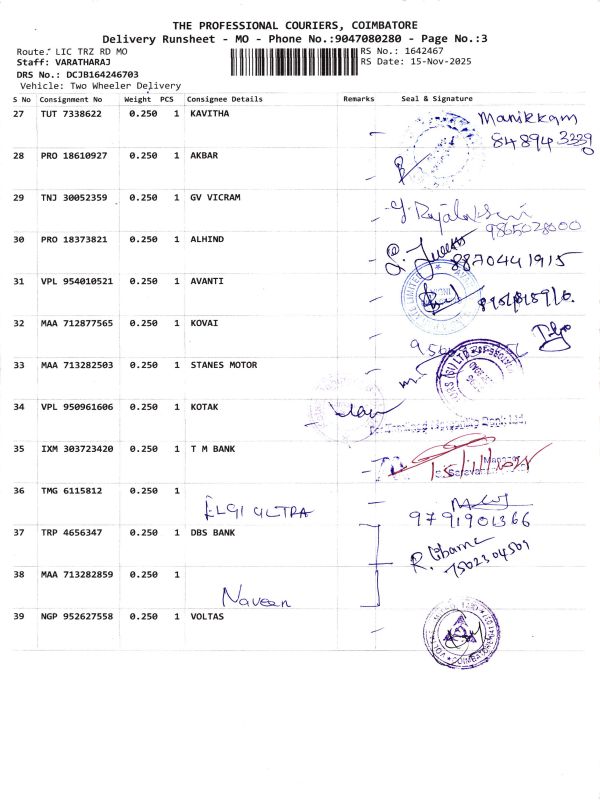 THE PROFESSIONAL COURIERS, COIMBATORE
Delivery Runsheet - MO - Phone No.:9047080280 - Page No.:3
Route: LIC TRZ RD MO
RS No.: 1642467
Staff: VARATHARAJ
RS Date: 15-Nov-2025
DRS No.: DCJB164246703
Vehicle: Two Wheeler Delivery
S No Consignment No Weight PCS Consignee Details Remarks Seal & Signature
27 TUT 7338622 0.250 1 KAVITHA Manikkam
84894 33390
28 PRO 18610927 0.250 1 AKBAR
29 TNJ 30052359 0.250 1 GV VICRAM
9865028000
30 PRO 18373821 0.250 1 ALHIND
8870441915
31 VPL 954010521 0.250 1 AVANTI
32 MAA 712877565 0.250 1 KOVAI
33 MAA 713282503 0.250 1 STANES MOTOR
34 VPL 950961606 0.250 1 KOTAK
35 IXM 303723420 0.250 1 T M BANK
36 TMG 6115812 0.250 1
ELGI ULTRA
9791901366
37 TRP 4656347 0.250 1 DBS BANK
7502304509
38 MAA 713282859 0.250 1
Naveen
39 NGP 952627558 0.250 1 VOLTAS